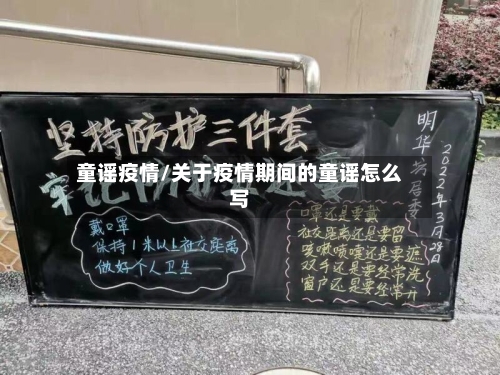 坚持防护三件套
童谣疫情/关于疫情期间的童谣怎么
写
牢记防护五还要
戴口罩
保持1米以上社交距离
做好个人卫生
口罩还是要戴
社交距离还是要留
咳嗽喷嚏还是要遮
双手还是要经常洗
窗户还是要经常开
明华居委
2022年3月29日